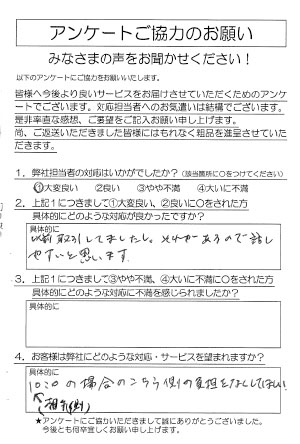 アンケートご協力のお願い
みなさまの声をお聞かせください！
以下のアンケートにご協力をお願いいたします。
皆様へ今後より良いサービスをお届けさせていただくためのアンケ
ートでございます。対応担当者へのお気遣いは結構でございます。
是非率直な感想、ご要望をご記入お願い申し上げます。
尚、ご返送いただきました皆様にはもれなく粗品を進呈させていた
だきます。
1．弊社担当者の対応はいかがでしたか？（該当箇所に○をつけてください）
①大変良い ②良い ③やや不満 ④大いに不満
2．上記1につきまして①大変良い、②良いに○をされた方
具体的にどのような対応が良かったですか？
具体的に
以前取引してましたし、それがあるので話し
やすいと思います。
3．上記1につきまして③やや不満、④大いに不満に○をされた方
具体的にどのような対応に不満を感じられましたか？
具体的に
4．お客様は弊社にどのような対応・サービスを望まれますか？
具体的に
の場合のこちら側の負担をなくしてほしい
(相手側)
★アンケートにご協力いただきまして誠にありがとうございました。
今後とも何卒宜しくお願い申し上げます。